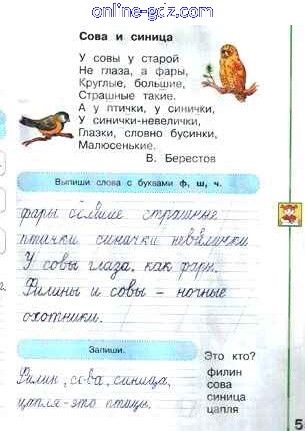 online-gdz.com
Сова и синица
У совы у старой
Не глаза, а фары,
Круглые, большие,
Страшные такие.
А у птички, у синички,
У синички-невелички,
Глазки, словно бусинки,
Малюсенькие.
В. Берестов
Выпиши слова с буквами ф, ш, ч.
фары большие страшные
птички синички невелички
У совы глаза, как фары.
Филины и совы – ночные
охотники.
Запиши.
Это кто?
филин
сова
синица
цапля
Филин, сова, синица,
цапля-это птицы.
5